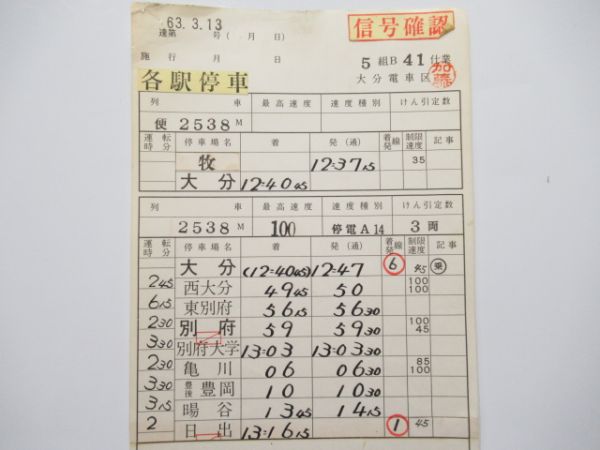 63.3.13
達第 号( 月 日)
信号確認
施行 月 日
5組B41仕業
各駅停車
大分電車区 加藤
列車 最高速度 速度種別 けん引定数
便 2538M
運転時分 停車場名 着 発(通) 着発線 制限速度 記事
牧 12=37 15 35
大分 12=40 45
列車 最高速度 速度種別 けん引定数
2538M 100 停電A14 3両
運転時分 停車場名 着 発(通) 着発線 制限速度 記事
大分 (12=40 45) 12=47 6 45 乗
2 45 西大分 49 45 50 100 100
6 15 東別府 56 15 56 30
2 30 別府 59 59 30 100 45
3 30 別府大学 13=03 13=03 30
2 30 亀川 06 06 30 85 100
3 30 豊後豊岡 10 10 30
3 15 暘谷 13 45 14 15
2 日出 13=16 15 1 45